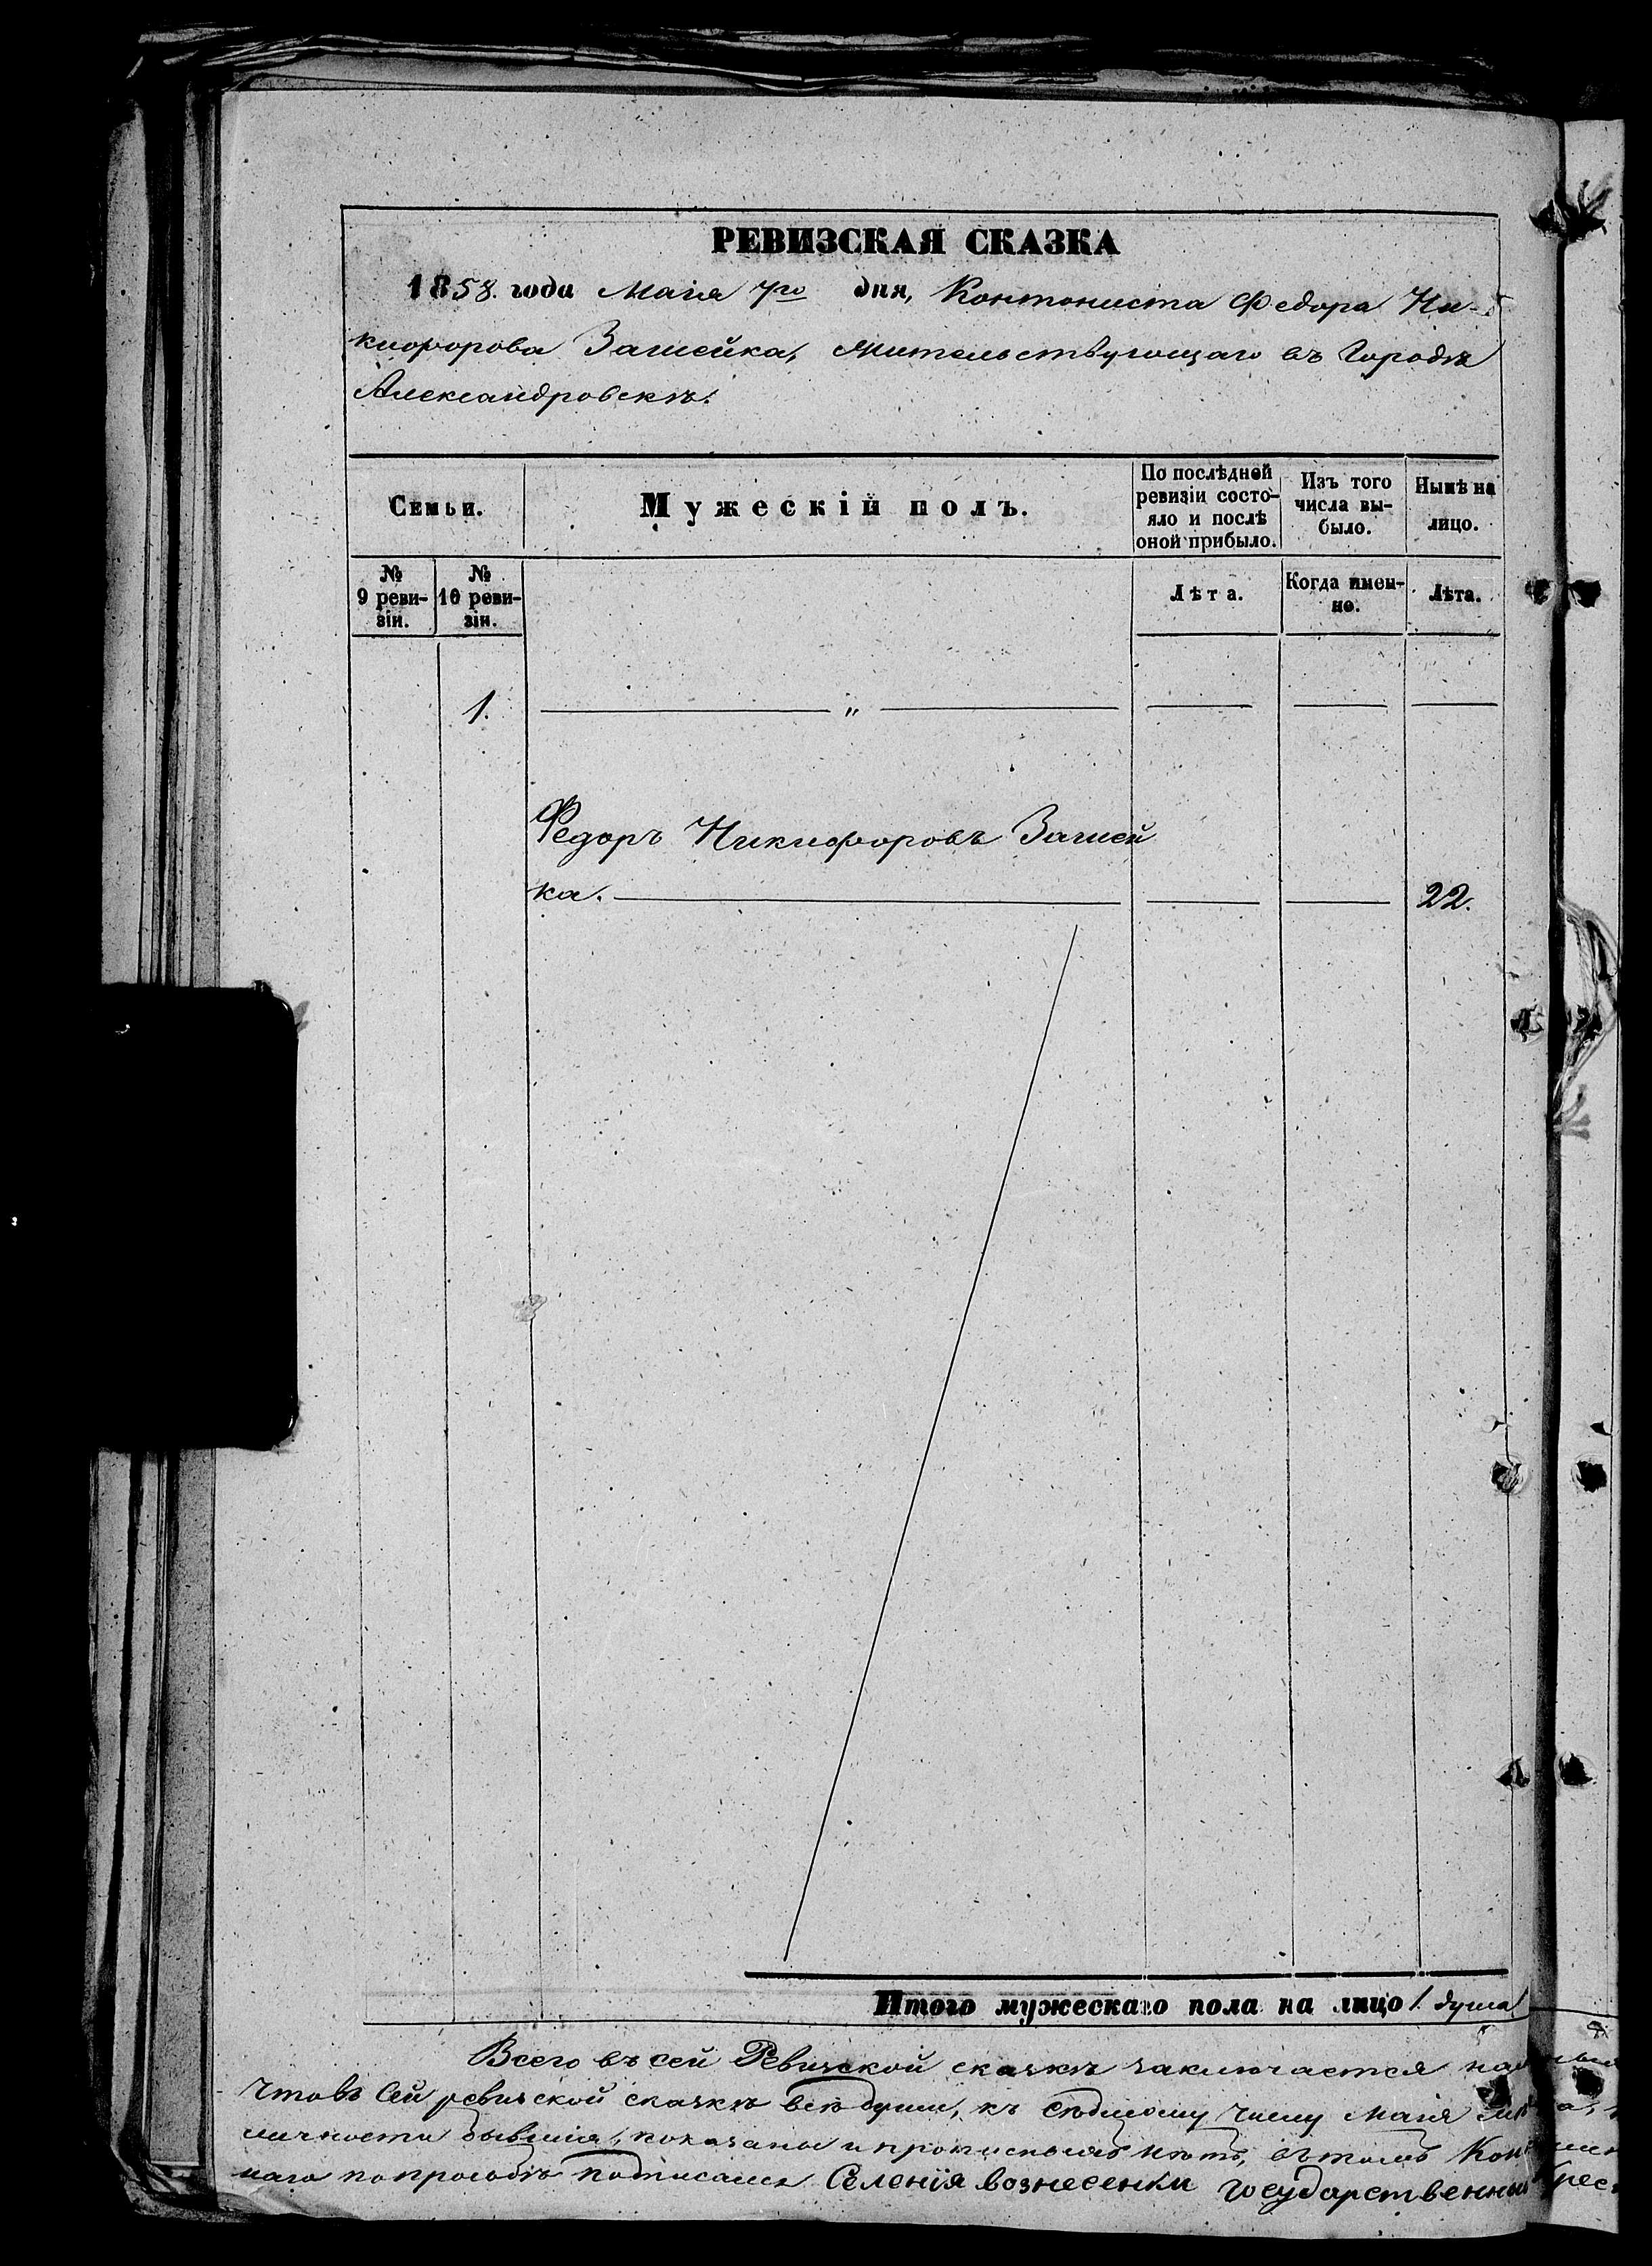 РЕВИЗСКАЯ СКАЗКА
1858. года Маія 7го дня, Контониста Федора Ни-
кифорова Зашейка, Жительствующаго въ Городѣ
Александровскѣ.
Семьи.
Мужескій полъ.
По послѣдней
ревизіи состо-
яло и послѣ
оной прибыло.
Изъ того
числа вы-
было.
Нынѣ на
лицо.
№
9 реви-
зіи.
№
10 реви-
зіи.
Лѣта.
Когда имен-
но.
Лѣта.
1. "
Федоръ Никифоровъ Зашей
ка. 22.
Итого мужескаго пола на лицо 1. душа
Всего въ сей Ревизской сказкѣ заключается
Что въ Сей ревизской сказкѣ всѣ души, къ седьмому числу Маія
личности бывшія, показаны и прописныхъ нѣтъ, въ томъ
наго по прозьбѣ подписался Селенія вознесенки государственный